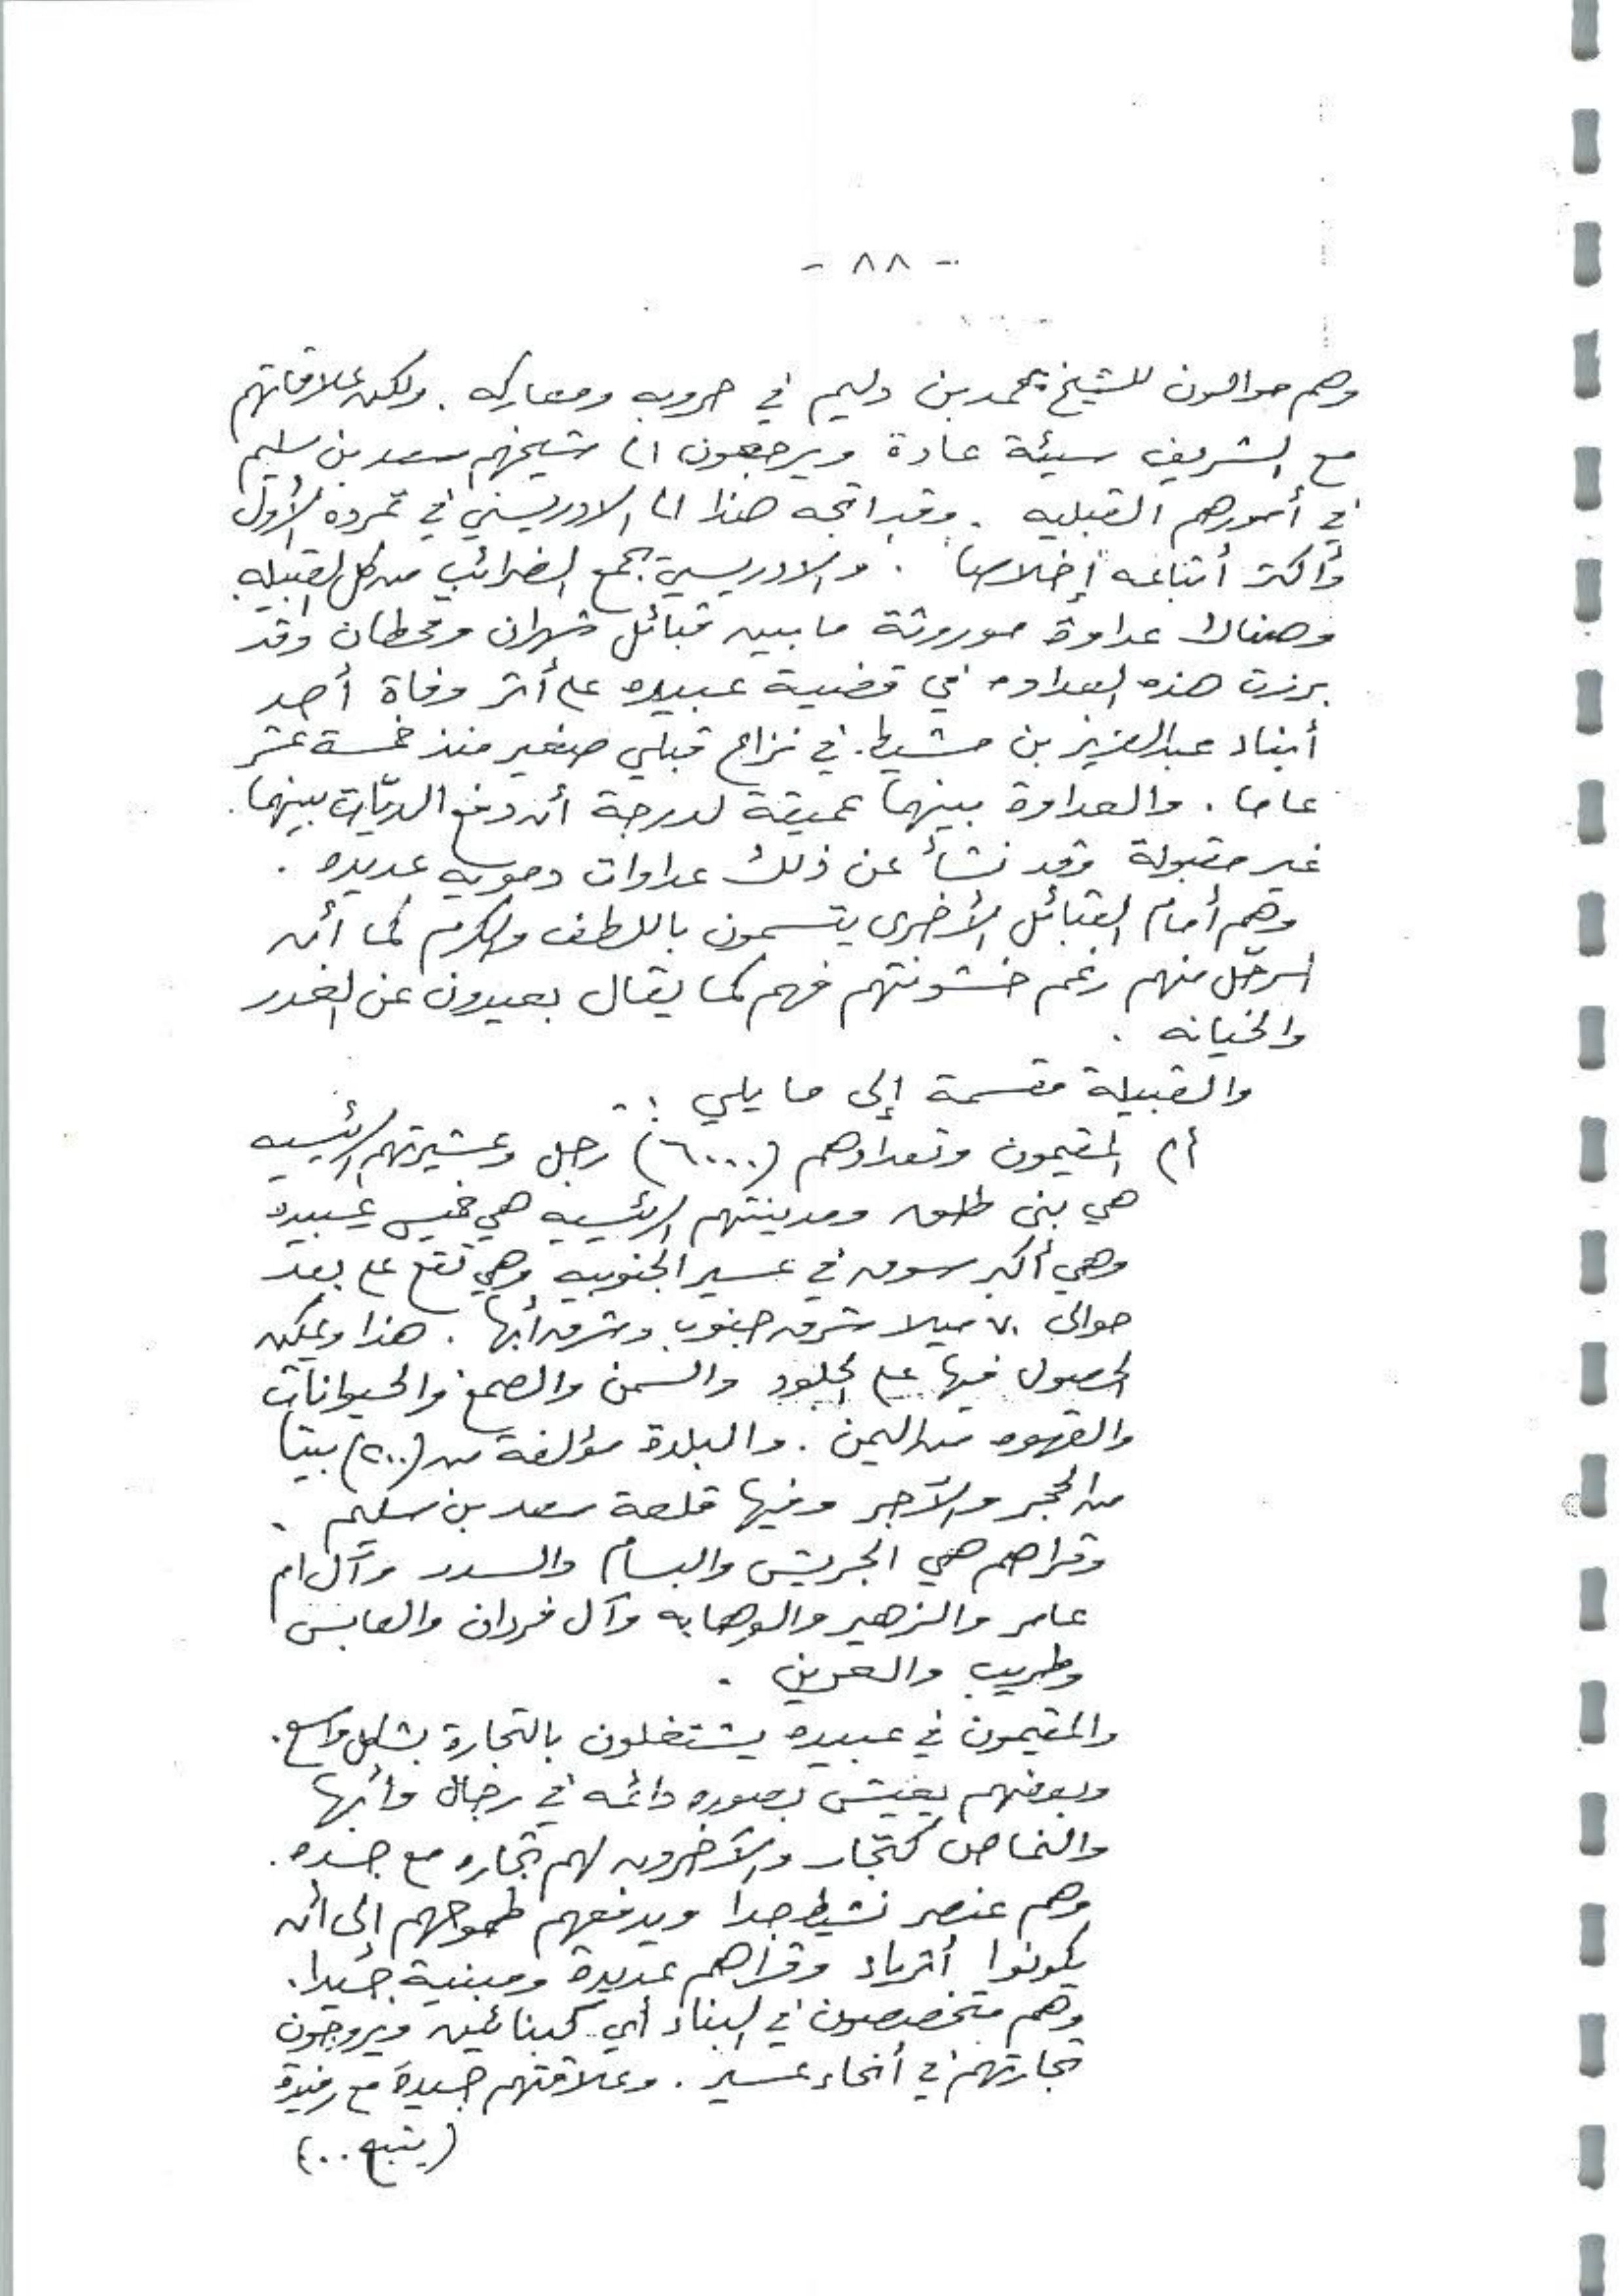 - ٨٨ -
وهم موالون للشيخ محمد بن دليم في حروبه ومعاركه . ولكن علاقاتهم
مع الشريف سيئة عادة ويرجعون الى شيخهم سعد بن سليم
في أمورهم القبليه . وقد اتجه هذا الى الادريسي في تمرده الأول
وأكثر أتباعه إخلاصا . والادريسي يجمع الضرائب من كل القبيله
وهناك عداوة موروثة ما بين قبائل شهران وقحطان وقد
برزت هذه العداوه في قضية عبيده على أثر وفاة أحد
أبناء عبدالعزيز بن مشيط . في نزاع قبلي صغير منذ خمسة عشر
عاما . والعداوة بينهما عميقة لدرجة أن دفع الديّات بينهما .
غير مقبولة وقد نشأ عن ذلك عداوات دمويه عديده .
وهم أمام القبائل الأخرى يتسمون باللطف والكرم كما أن
الرجل منهم رغم خشونتهم فهم كما يقال بعيدون عن الغدر
والخيانه .
والقبيلة مقسمة إلى ما يلي : -
أ) المقيمون وتعدادهم (٦٠٠٠) رجل وعشيرتهم الرئيسيه
هي بني طلق ومدينتهم الرئيسيه هي خميس عبيده
وهي أكبر سوق في عسير الجنوبيه وهي تقع على بعد
حوالى ٧٠ ميلا شرق جنوب وشرق أبها . هذا ويمكن
الحصول فيها على الجلود والسمن والصمغ والحيوانات
والقهوه من اليمن . والبلدة مؤلفة من (٢٠٠) بيتا
من الحجر والآجر وفيها قلعة سعد بن سليم .
وقراهم هي الجريش والبسام والسدد وآل ام
عامر والزهير والوهابه وآل فردان والعابس
وطريب والعرين .
والمقيمون في عبيده يشتغلون بالتجارة بشكل واسع .
وبعضهم يعيش بصوره دائمه في رجال وأبها
والنماص كتجار والآخرون لهم تجاره مع جده .
وهم عنصر نشيط جدا ويدفعهم طموحهم إلى أن
يكونوا أثرياء وقراهم عديدة ومبنية جيدا .
وهم متخصصون في البناء أي كبنائين ويروجون
تجارتهم في أنحاء عسير . وعلاقتهم جيدة مع رفيدة
(يتبع ..)